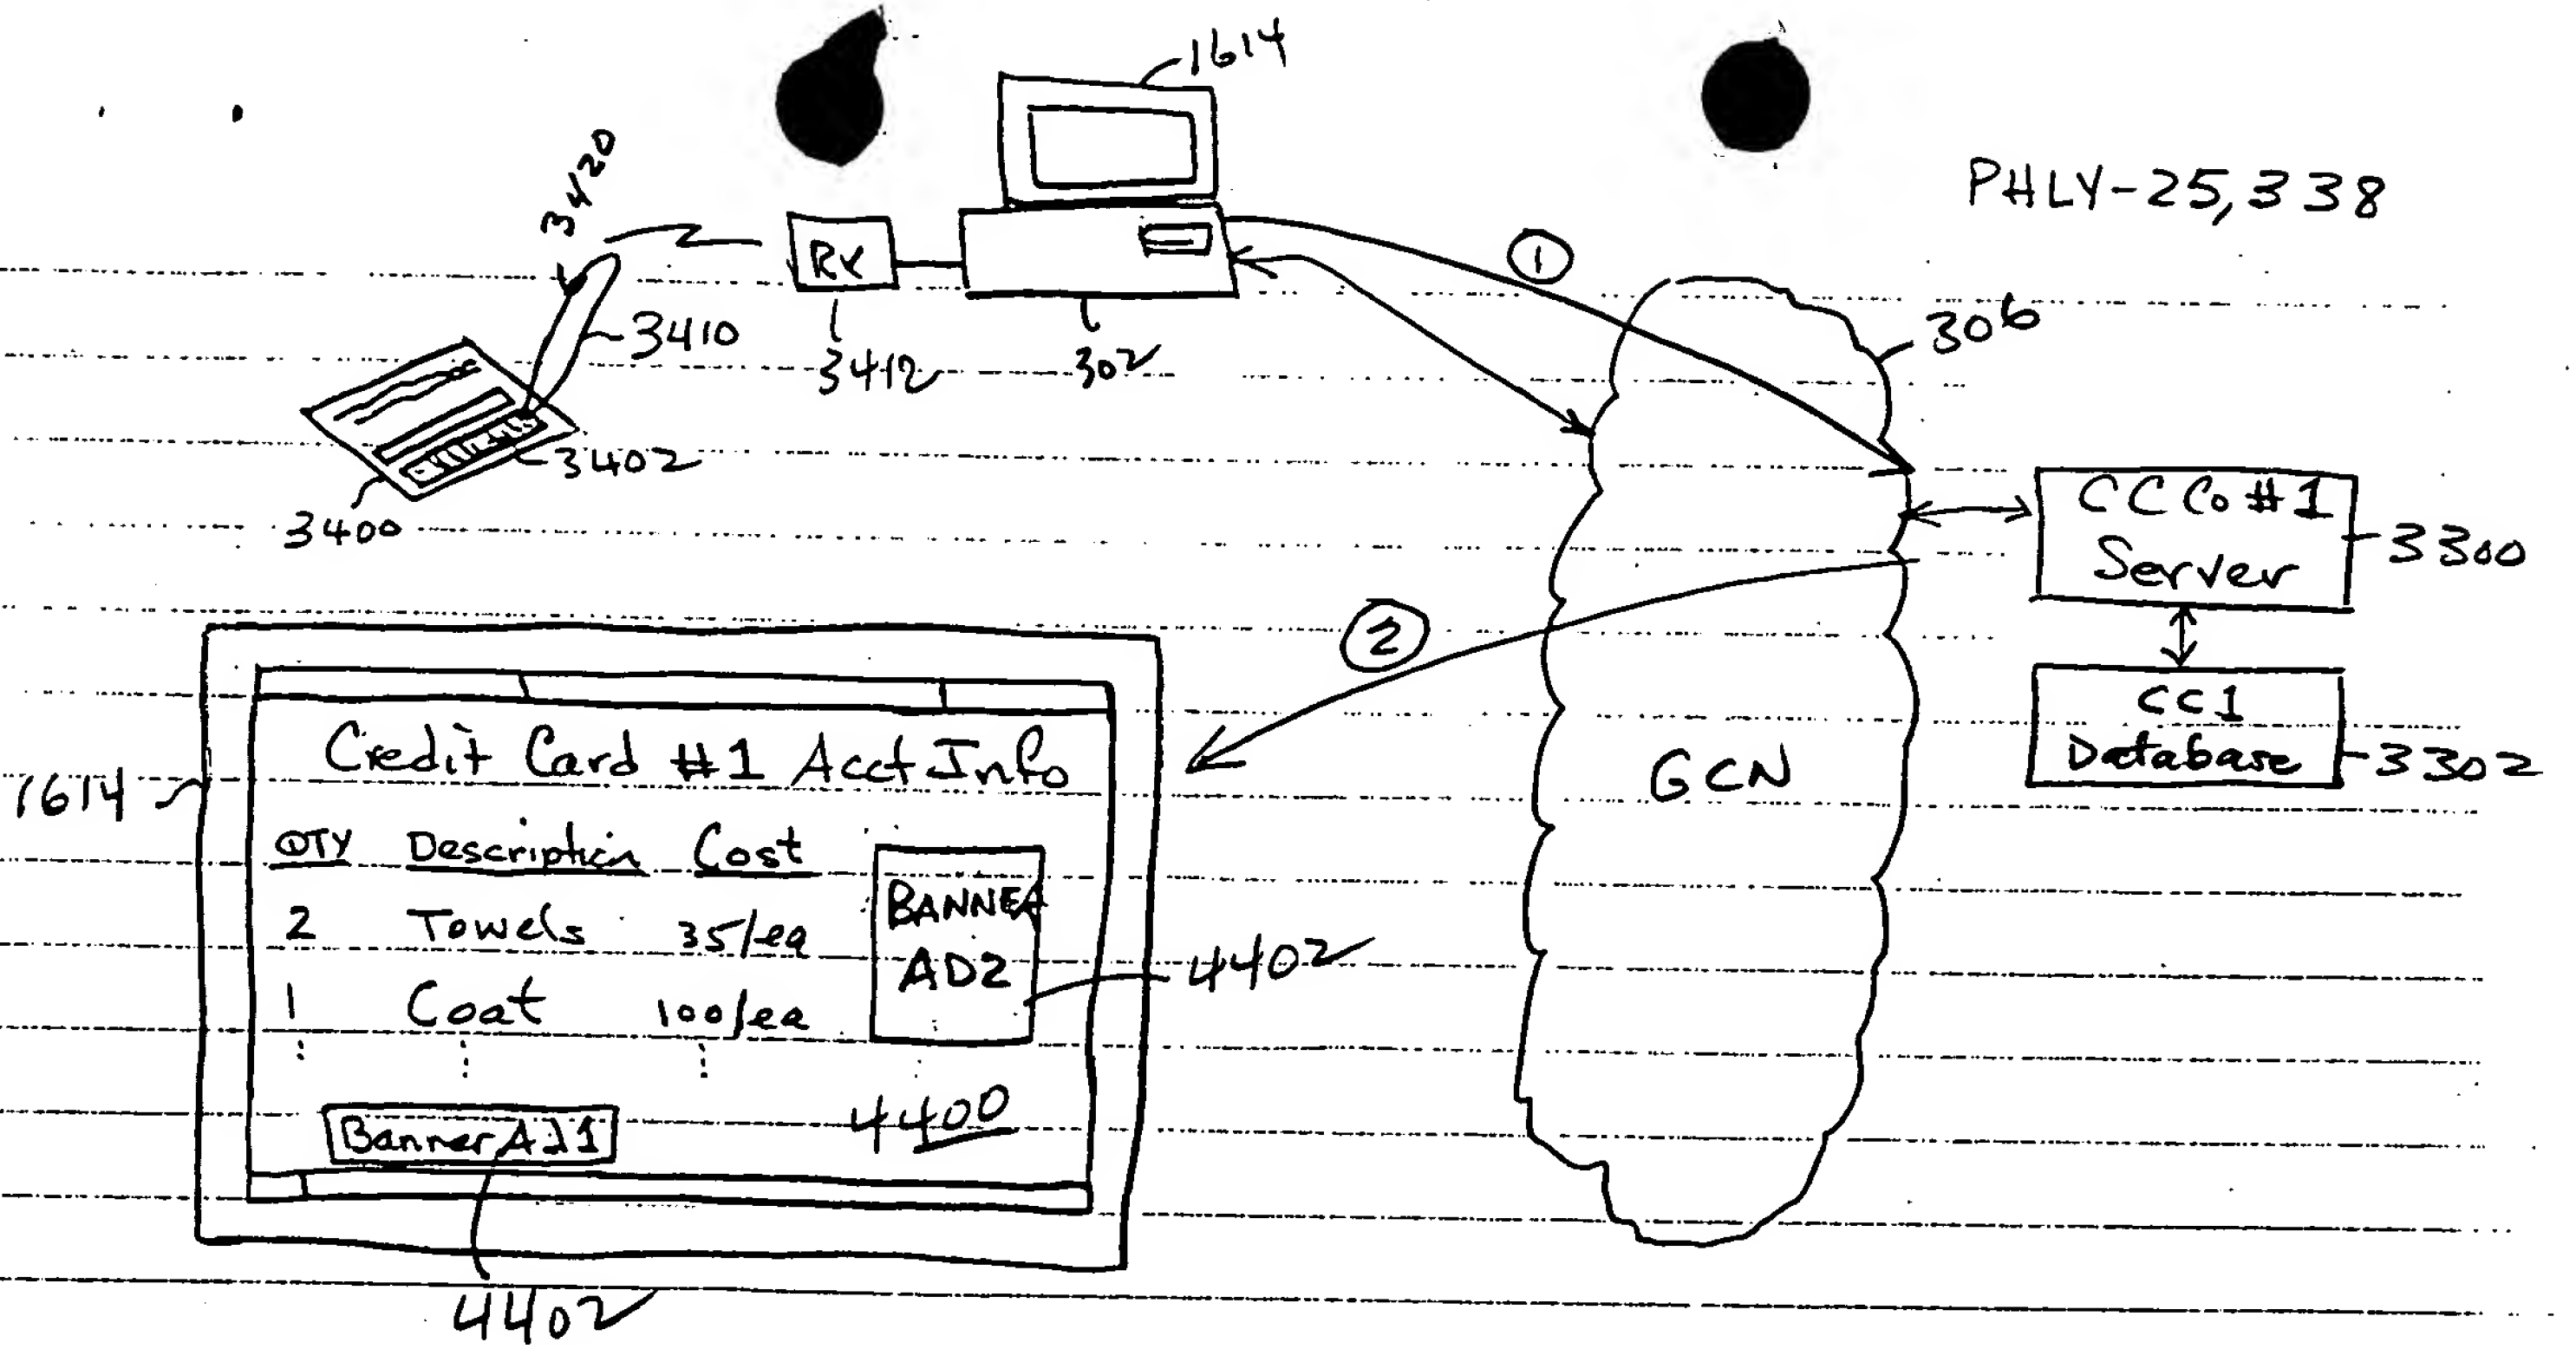 1614
PHLY-25,338
3420
RX
1
306
3410
3412
302
3402
3400
CC Co #1
Server
3300
2
CC1
Database
3302
GCN
Credit Card #1 Acct Info
1614
QTY Description Cost
2 Towels 35/ea
1 Coat 100/ea
BANNER
AD2
4402
4400
Banner Ad1
4402